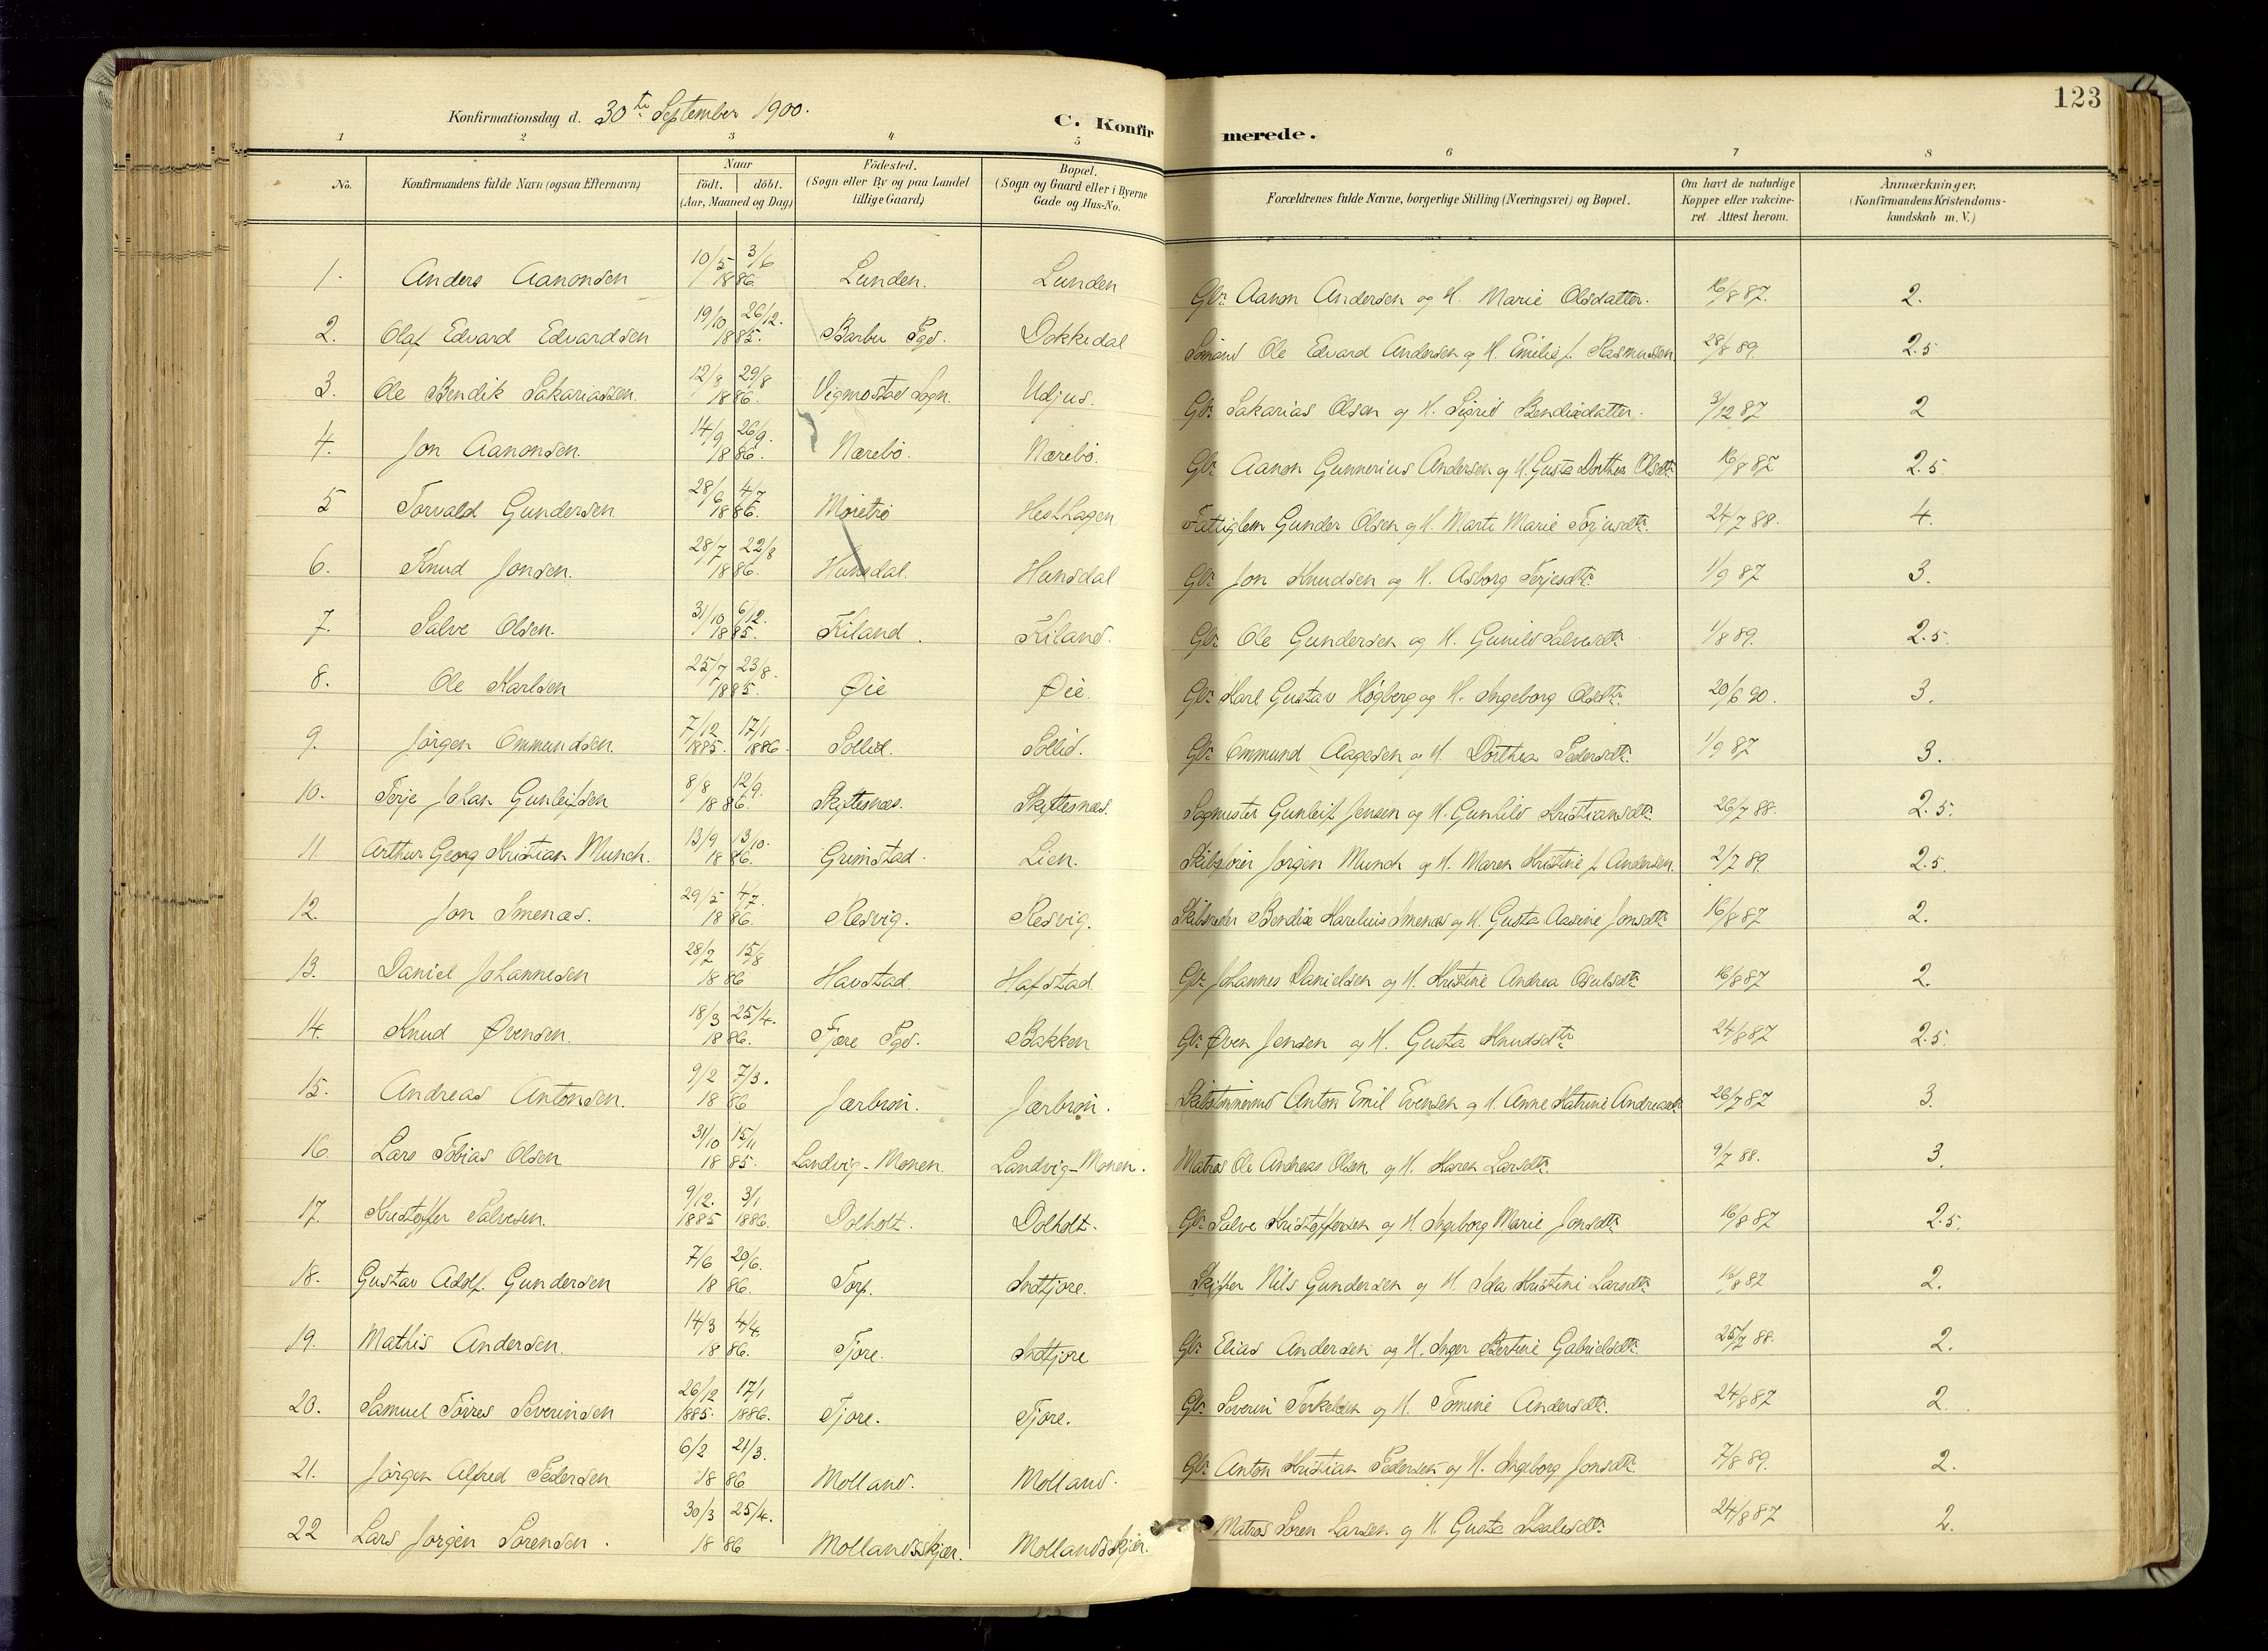 123
Konfirmationsdag d. 30te September 1900.
C. Konfirmerede.
1 2 3 4 5 6 7 8
No.
Konfirmandens fulde Navn (ogsaa Efternavn)
Naar
födt. döbt.
(Aar, Maaned og Dag)
Födested.
(Sogn eller By og paa Landet
tillige Gaard)
Bopæl.
(Sogn og Gaard eller i Byerne
Gade og Hus-No.
Forældrenes fulde Navne, borgerlige Stilling (Næringsvei) og Bopæl.
Om havt de naturlige
Kopper eller vakcine-
ret. Attest herom.
Anmærkninger.
(Konfirmandens Kristendoms-
kundskab m. V.)
1. Anders Aanonsen 10/5 3/6 1886. Lunden. Lunden Gbr. Aanon Andersen og H. Marie Olsdatter. 16/8 87. 2.
2. Olaf Edvard Edvardsen 19/10 26/12. 1885. Barbu Pgd. Dokkedal Sömand Ole Edvard Andersen og H. Emilie f. Rasmussen 28/8 89. 2.5
3. Ole Bendik Sakariassen. 12/8 29/8 1886. Vigmostad Sogn. Udjus. Gbr. Sakarias Olsen og H. Sigrid Bendixdatter. 3/12 87 2
4. Jon Aanonsen. 14/9 26/9. 1886. Nærebö. Nærebö. Gbr. Aanon Gunnerius Andersen og H. Gusta Dorthea Olsdtr. 16/8 87 2.5.
5 Torvald Gundersen 28/6 4/7 1886. Möretrö Hesthagen Fattiglem Gunder Olsen og H. Marte Marie Torjusdtr. 24/7 88. 4.
6. Knud Jonsen. 28/7 22/8 1886. Hunsdal. Hunsdal Gbr. Jon Knudsen og H. Asborg Terjesdtr. 1/9 87 3.
7. Salve Olsen. 31/10 6/12. 1885. Kiland. Kiland. Gbr. Ole Gundersen og H. Gunild Salvesdtr. 1/8 89. 2.5.
8. Ole Karlsen 25/7 23/8. 1885. Øie Øie. Gbr. Karl Gustav Högberg og H. Ingeborg Olsdtr. 20/6 90. 3.
9. Jörgen Ommundsen. 7/12 1885. 17/1 1886. Sollid. Sollid. Gbr. Ommund Aagesen og H. Dorthea Pedersdtr. 1/9 87 3.
10. Terje Johan Gunleifsen 8/8 12/9. 1886. Skiftesnæs. Skiftesnæs. Sagmester Gunleif Jensen og H. Gunhild Kristiansdtr. 26/7 88. 2.5.
11. Arthur Georg Kristian Munch. 13/9 13/10. 1886. Grimstad. Lien. Skibsförer Jörgen Munch og H. Maren Kristine f. Andersen. 2/7 89. 2.5.
12. Jon Smenæs. 29/5 4/7. 1886. Resvig. Resvig. Skibsreder Bendix Karelius Smenæs og H. Gusta Aasine Jonsdtr. 16/8 87 2.
13. Daniel Johannesen 28/2 15/8 1886 Havstad. Hafstad. Gbr. Johannes Danielsen og H. Kristine Andrea Osulsdtr. 16/8 87 2.
14. Knud Øvensen. 18/3 25/4. 1886. Fjære Pgd. Bakken Gbr. Øven Jensen og H. Gusta Knudsdtr. 24/8 87 2.5.
15. Andreas Antonsen. 9/2 7/3. 1886 Jærbrön. Jærbrön. Skibstömmermd Anton Emil Evensen og H. Anne Katrine Andreasdtr. 26/7 87 3.
16. Lars Tobias Olsen 31/10 15/11 1885. Landvig-Monen. Landvig-Monen. Matros Ole Andreas Olsen og H. Karen Larsdtr. 9/7 88. 3.
17. Kristoffer Salvesen. 9/12. 1885 3/1 1886. Dolholt. Dolholt. Gbr. Salve Kristoffersen og H. Ingeborg Marie Jonsdtr. 16/8 87 2.5.
18. Gustav Adolf Gundersen 7/6 20/6. 1886. Torp. Indtjore. Skipper Nils Gundersen og H. Ida Kristine Larsdtr. 16/8 87 2.
19. Mathis Andersen. 14/3 4/4. 1886. Tjore. Indtjore Gbr. Elias Andersen og H. Inger Bertine Gabrielsdtr. 25/7 88. 2.
20. Samuel Törres Severinsen 26/12 1885. 17/1 1886. Tjore. Tjore. Gbr. Severin Terkelsen og H. Tomine Andersdtr. 24/8 87 2.
21. Jörgen Alfred Pedersen 6/2 21/3. 1886 Molland. Molland. Gbr. Anton Kristian Pedersen og H. Ingeborg Jonsdtr. 7/8 89. 2.
22 Lars Jörgen Sörensen. 30/3 25/4. 1886 Mollandsskjær. Mollandsskjær. Matros Sören Larsen og H. Gusta 24/8 87 2.